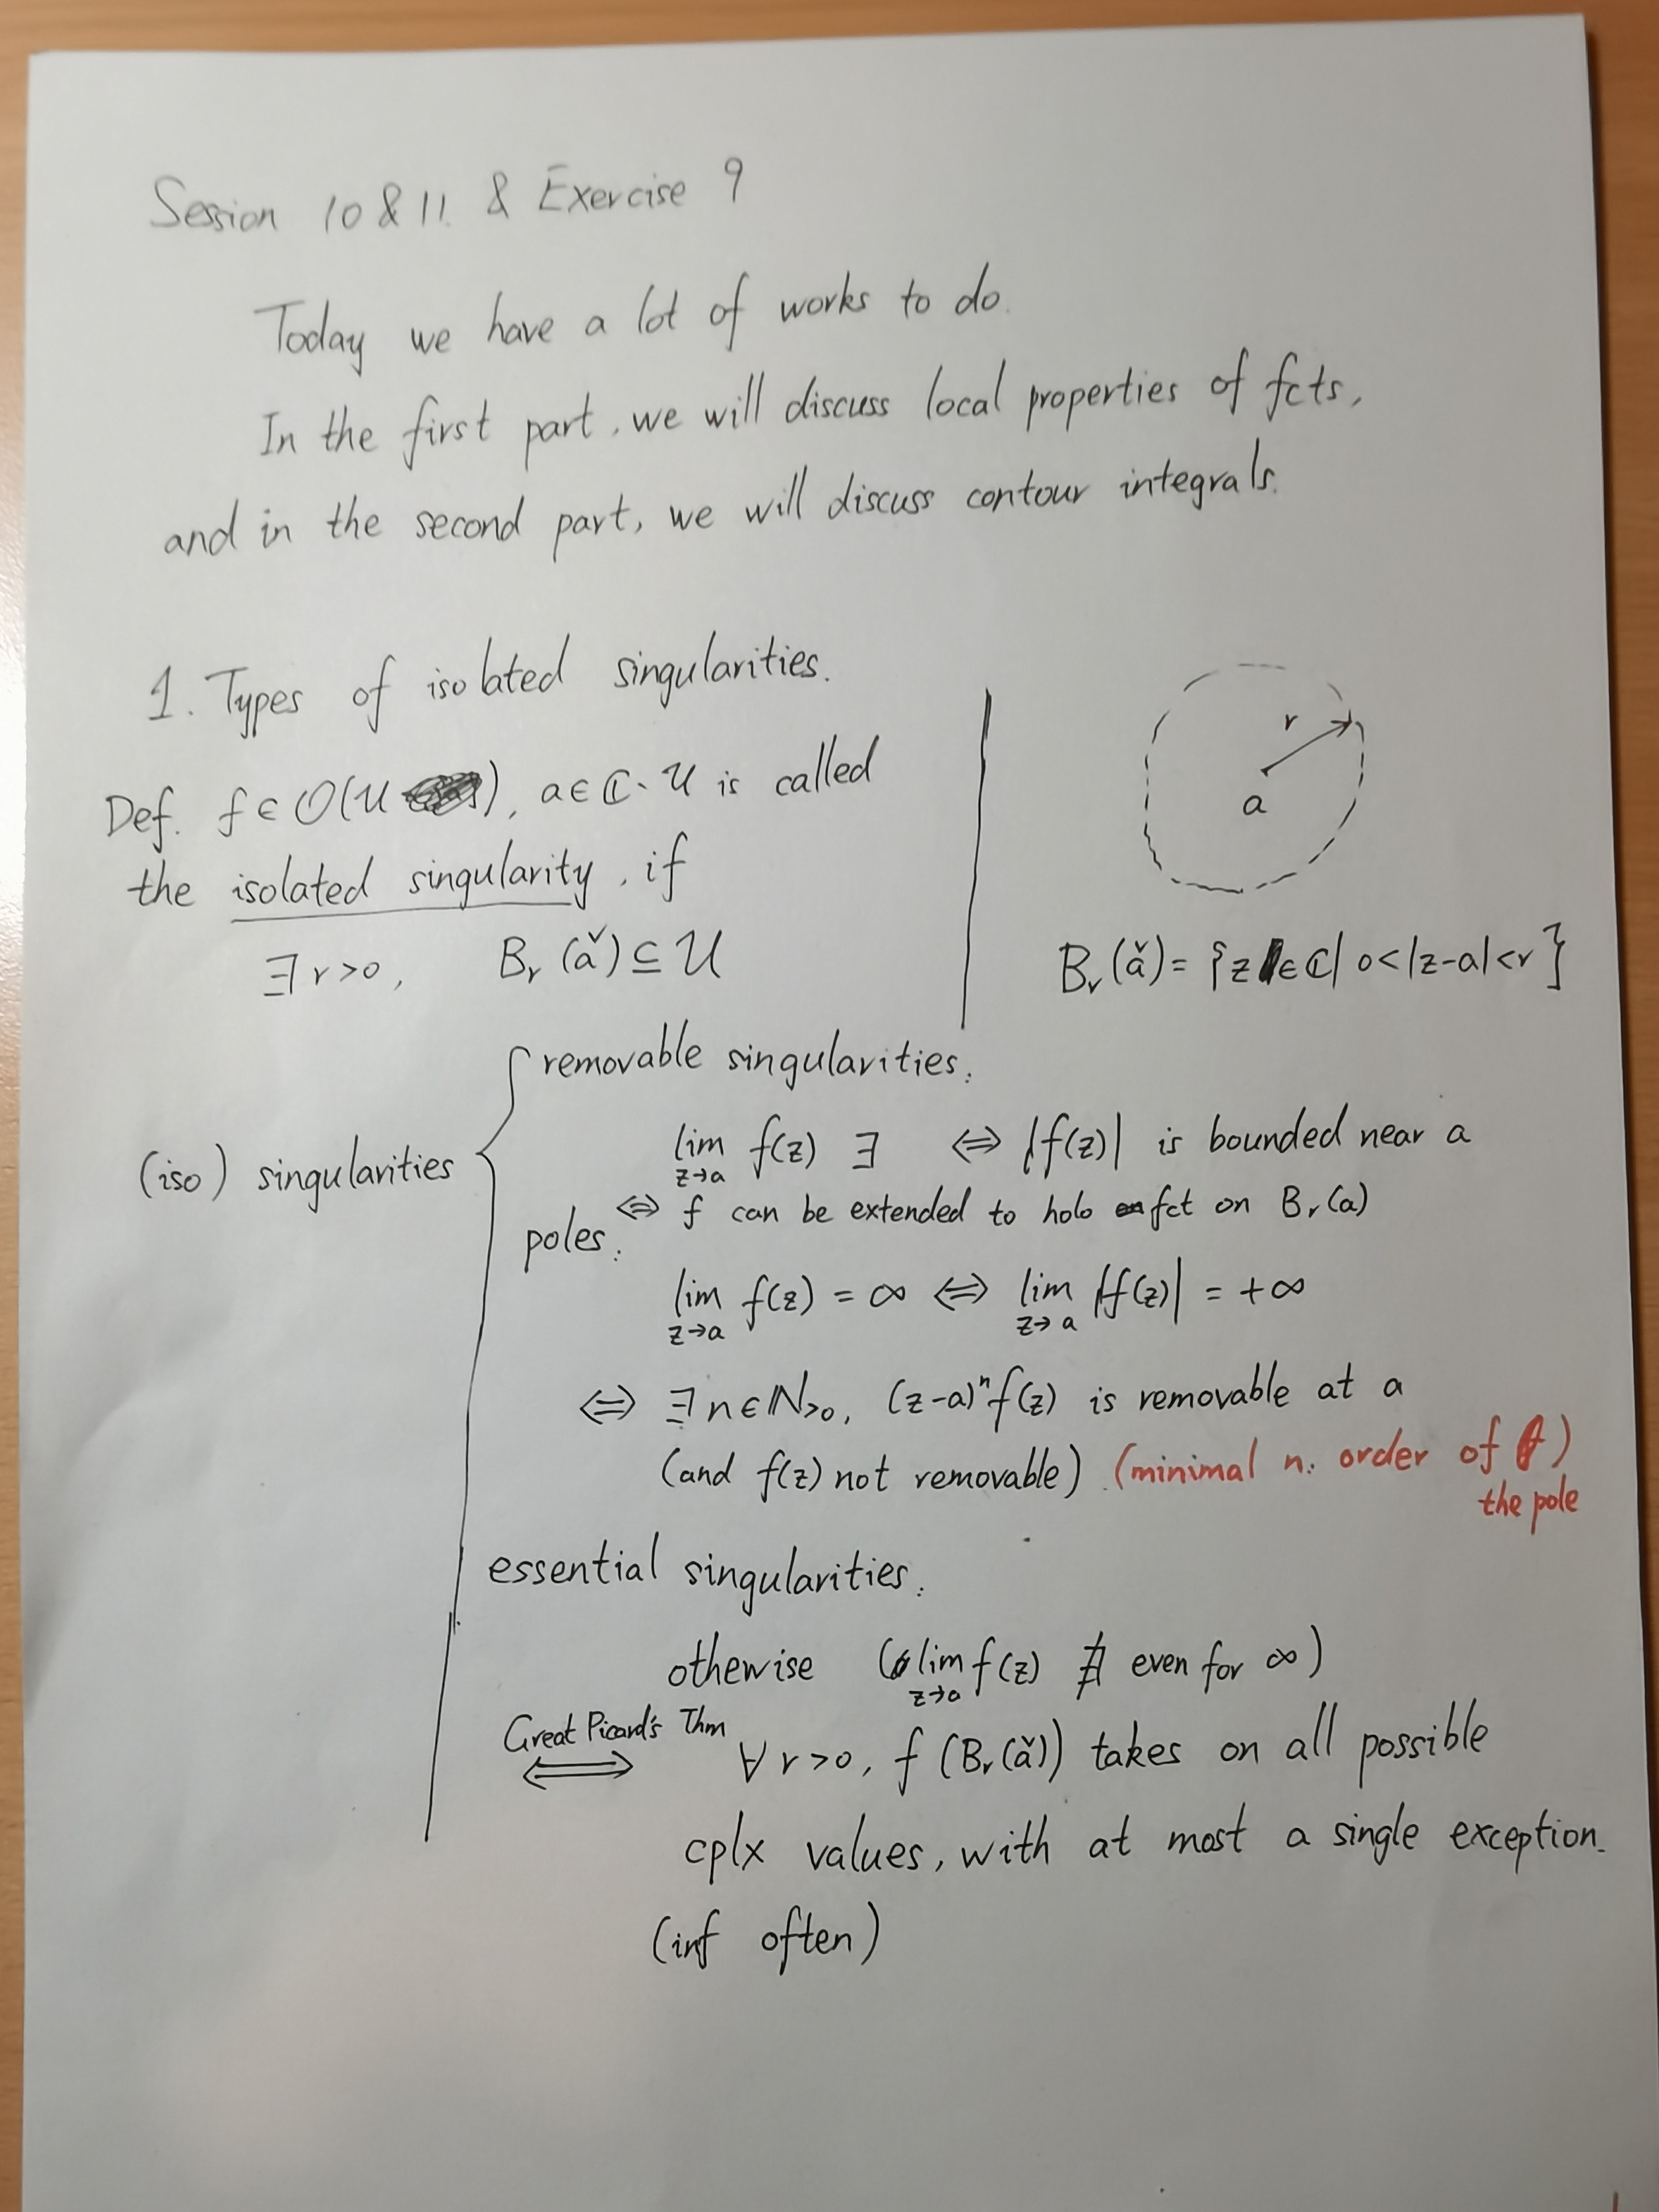 Session 10 & 11. & Exercise 9
Today we have a lot of works to do.
In the first part, we will discuss local properties of fcts,
and in the second part, we will discuss contour integrals.
1. Types of isolated singularities.
Def. f ∈ O(U), a ∈ ℂ - U is called
the isolated singularity, if
∃ r>0, Bᵣ(ǎ) ⊆ U
r
a
Bᵣ(ǎ) = {z ∈ ℂ | 0<|z-a|<r}
(iso) singularities
removable singularities:
lim_{z→a} f(z) ∃ ⇔ |f(z)| is bounded near a
⇔ f can be extended to holo fct on Bᵣ(a)
poles:
lim_{z→a} f(z) = ∞ ⇔ lim_{z→a} |f(z)| = +∞
⇔ ∃ n ∈ ℕ_{>0}, (z-a)ⁿ f(z) is removable at a
(and f(z) not removable) (minimal n: order of the pole)
essential singularities:
othewise (lim_{z→a} f(z) ∄ even for ∞)
Great Picard's Thm
⇔ ∀ r>0, f(Bᵣ(ǎ)) takes on all possible
cplx values, with at most a single exception.
(inf often)